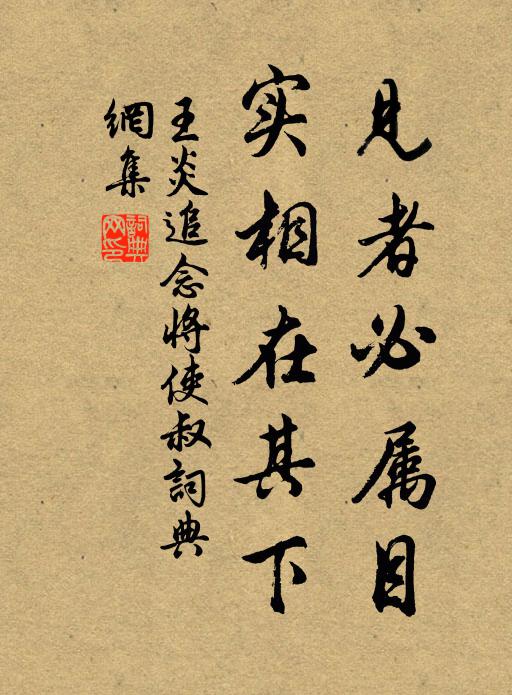 见者必属目
实相在其下
王炎追念将使叔詞典
網集
詞典
网印